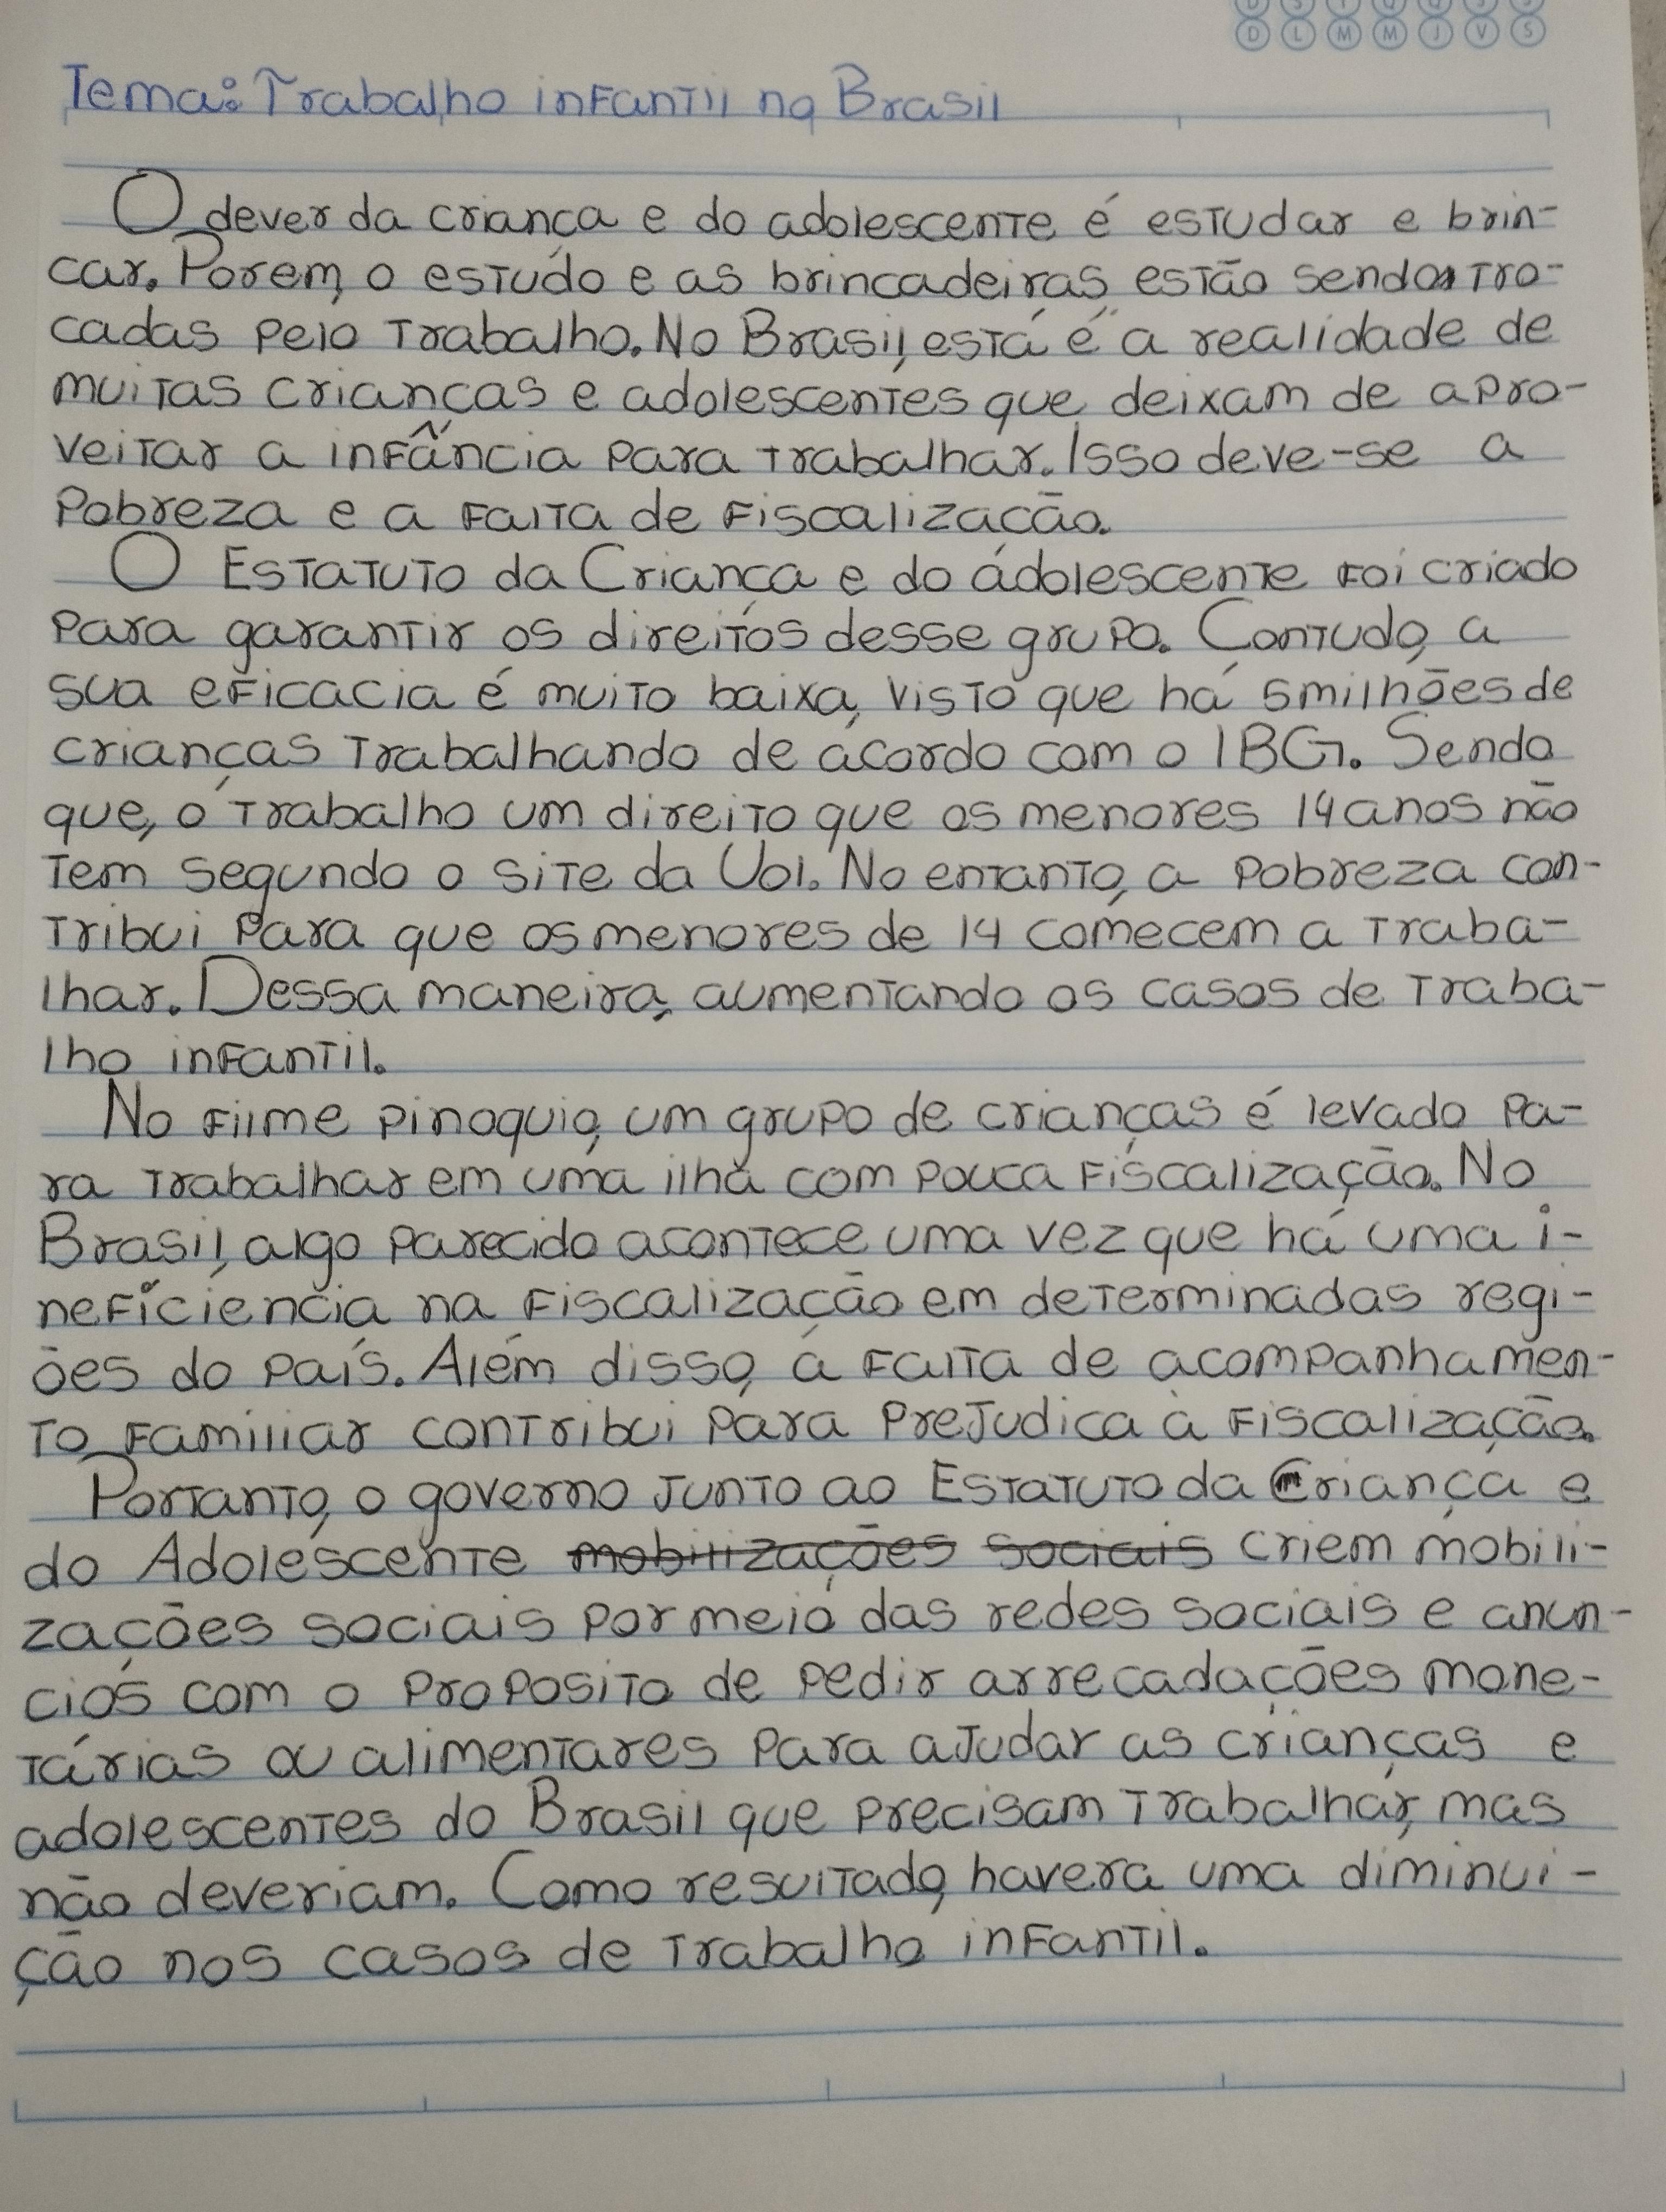 D L M M J V S
Tema: Trabalho infantil no Brasil
O dever da criança e do adolescente é estudar e brin-
car. Porem, o estudo e as brincadeiras estão sendo tro-
cadas pelo trabalho. No Brasil, está é a realidade de
muitas crianças e adolescentes que deixam de apro-
veitar a infância para trabalhar. Isso deve-se a
pobreza e a falta de fiscalização.
O Estatuto da Criança e do adolescente foi criado
para garantir os direitos desse grupo. Contudo, a
sua eficacia é muito baixa, visto que há 5 milhões de
crianças trabalhando de acordo com o IBG. Sendo
que, o trabalho um direito que os menores 14 anos não
tem segundo o site da Uol. No entanto, a pobreza con-
tribui para que os menores de 14 comecem a traba-
lhar. Dessa maneira, aumentando os casos de traba-
lho infantil.
No filme pinoquio, um grupo de crianças é levado pa-
ra trabalhar em uma ilha com pouca fiscalização. No
Brasil, algo parecido acontece uma vez que há uma i-
neficiencia na fiscalização em determinadas regi-
ões do país. Além disso, a falta de acompanhamen-
to familiar contribui para prejudica a fiscalização.
Portanto, o governo junto ao Estatuto da Criança e
do Adolescente mobilizações sociais criem mobili-
zações sociais por meio das redes sociais e anun-
cios com o proposito de pedir arrecadações mone-
tárias ou alimentares para ajudar as crianças e
adolescentes do Brasil que precisam trabalhar, mas
não deveriam. Como resultado, havera uma diminui-
ção nos casos de trabalho infantil.